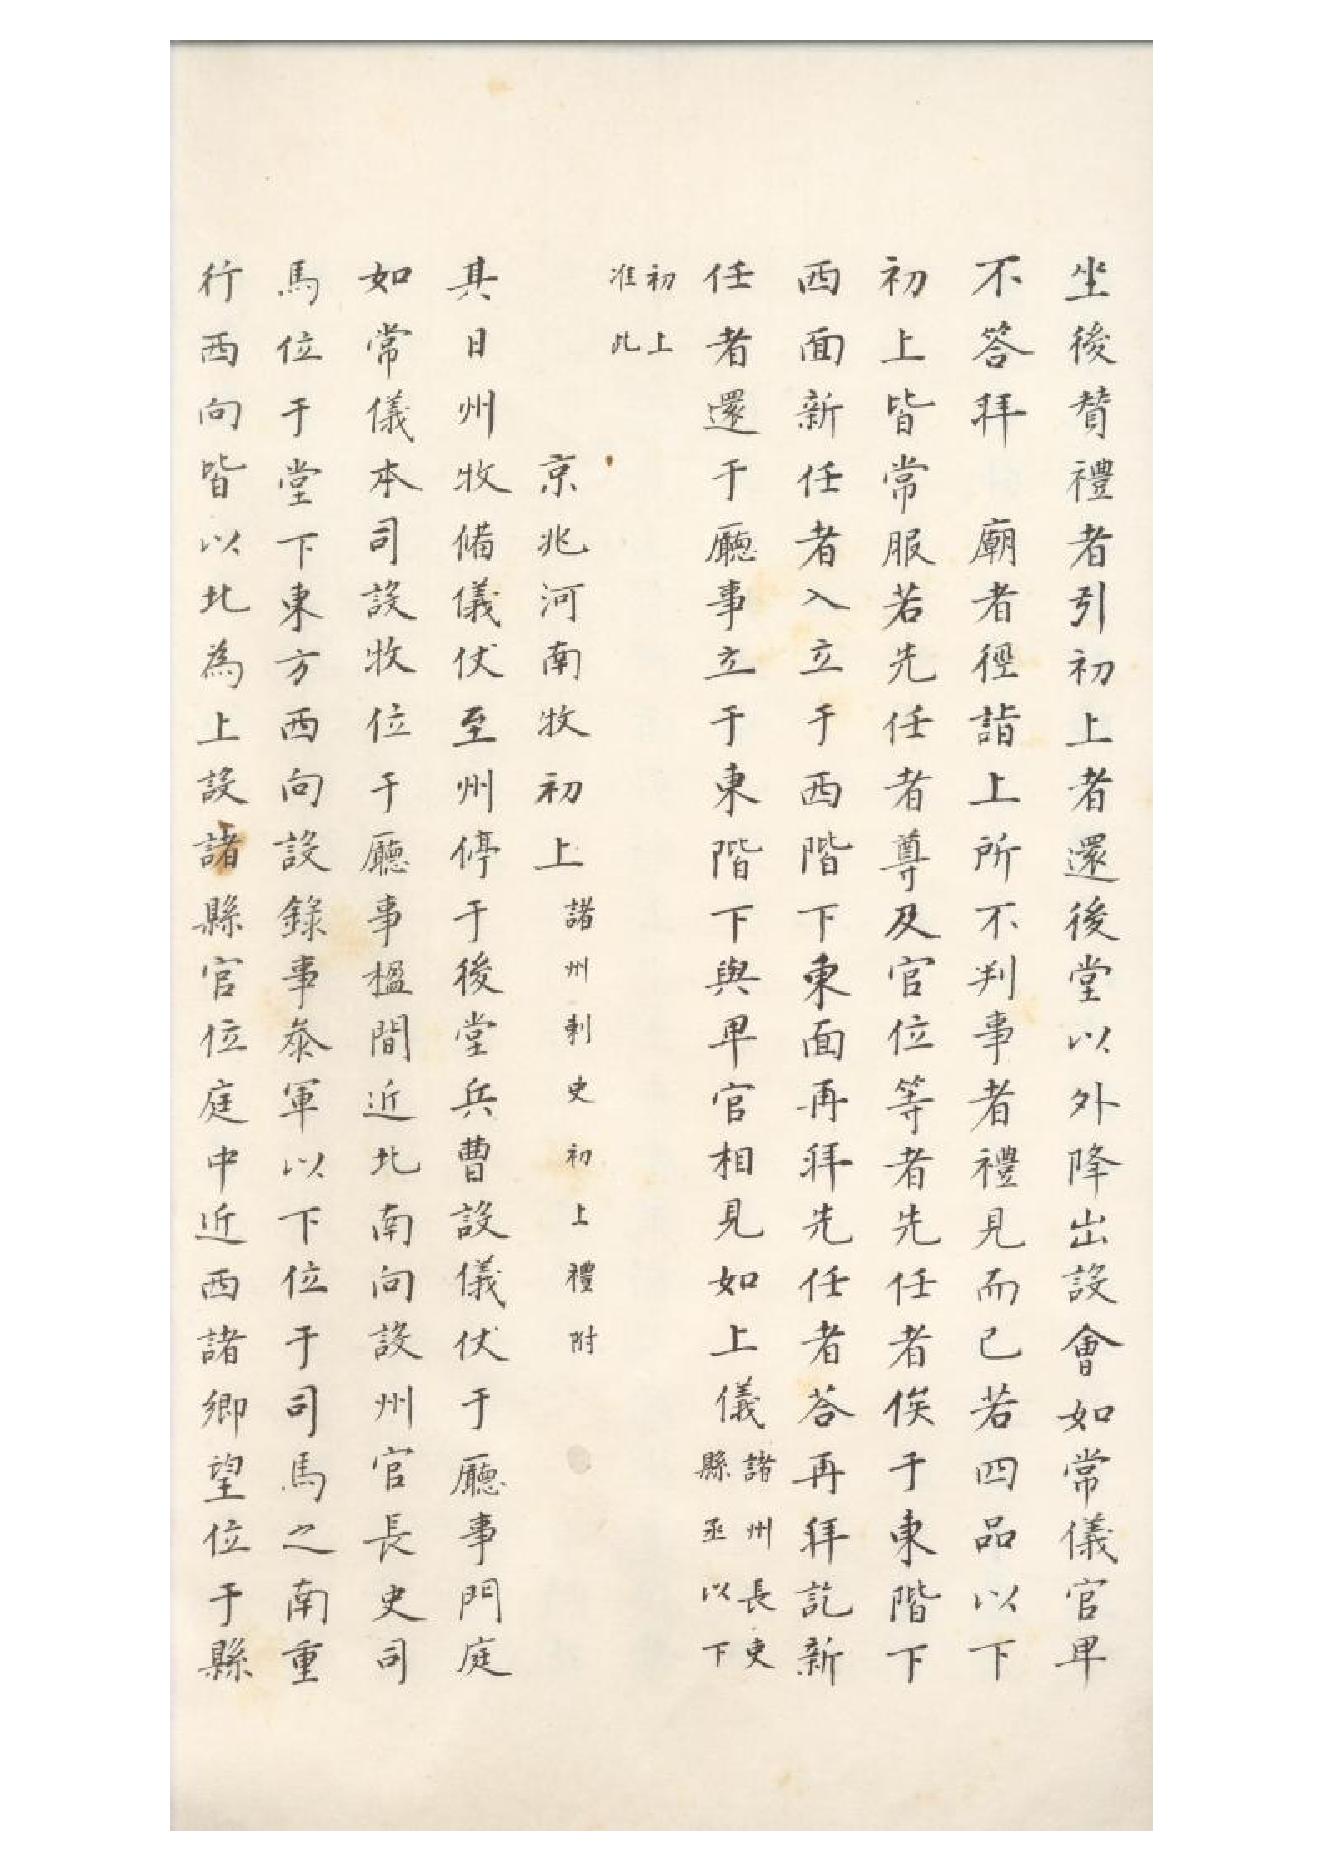 坐後贊禮者引初上者還後堂以外降出設會如常儀官卑
不答拜　廟者徑詣上所不判事者禮見而已若四品以下
初上皆常服若先任者尊及官位等者先任者俟于東階下
西面新任者入立于西階下東面再拜先任者荅再拜訖新
任者還于廳事立于東階下與卑官相見如上儀諸州長吏
縣丞以下
初上
准此
京兆河南牧初上諸州刺史初上禮附
其日州牧備儀仗至州停于後堂兵曹設儀仗于廳事門庭
如常儀本司設牧位于廳事楹間近北南向設州官長史司
馬位于堂下東方西向設錄事叅軍以下位于司馬之南重
行西向皆以北為上設諸縣官位庭中近西諸鄉望位于縣